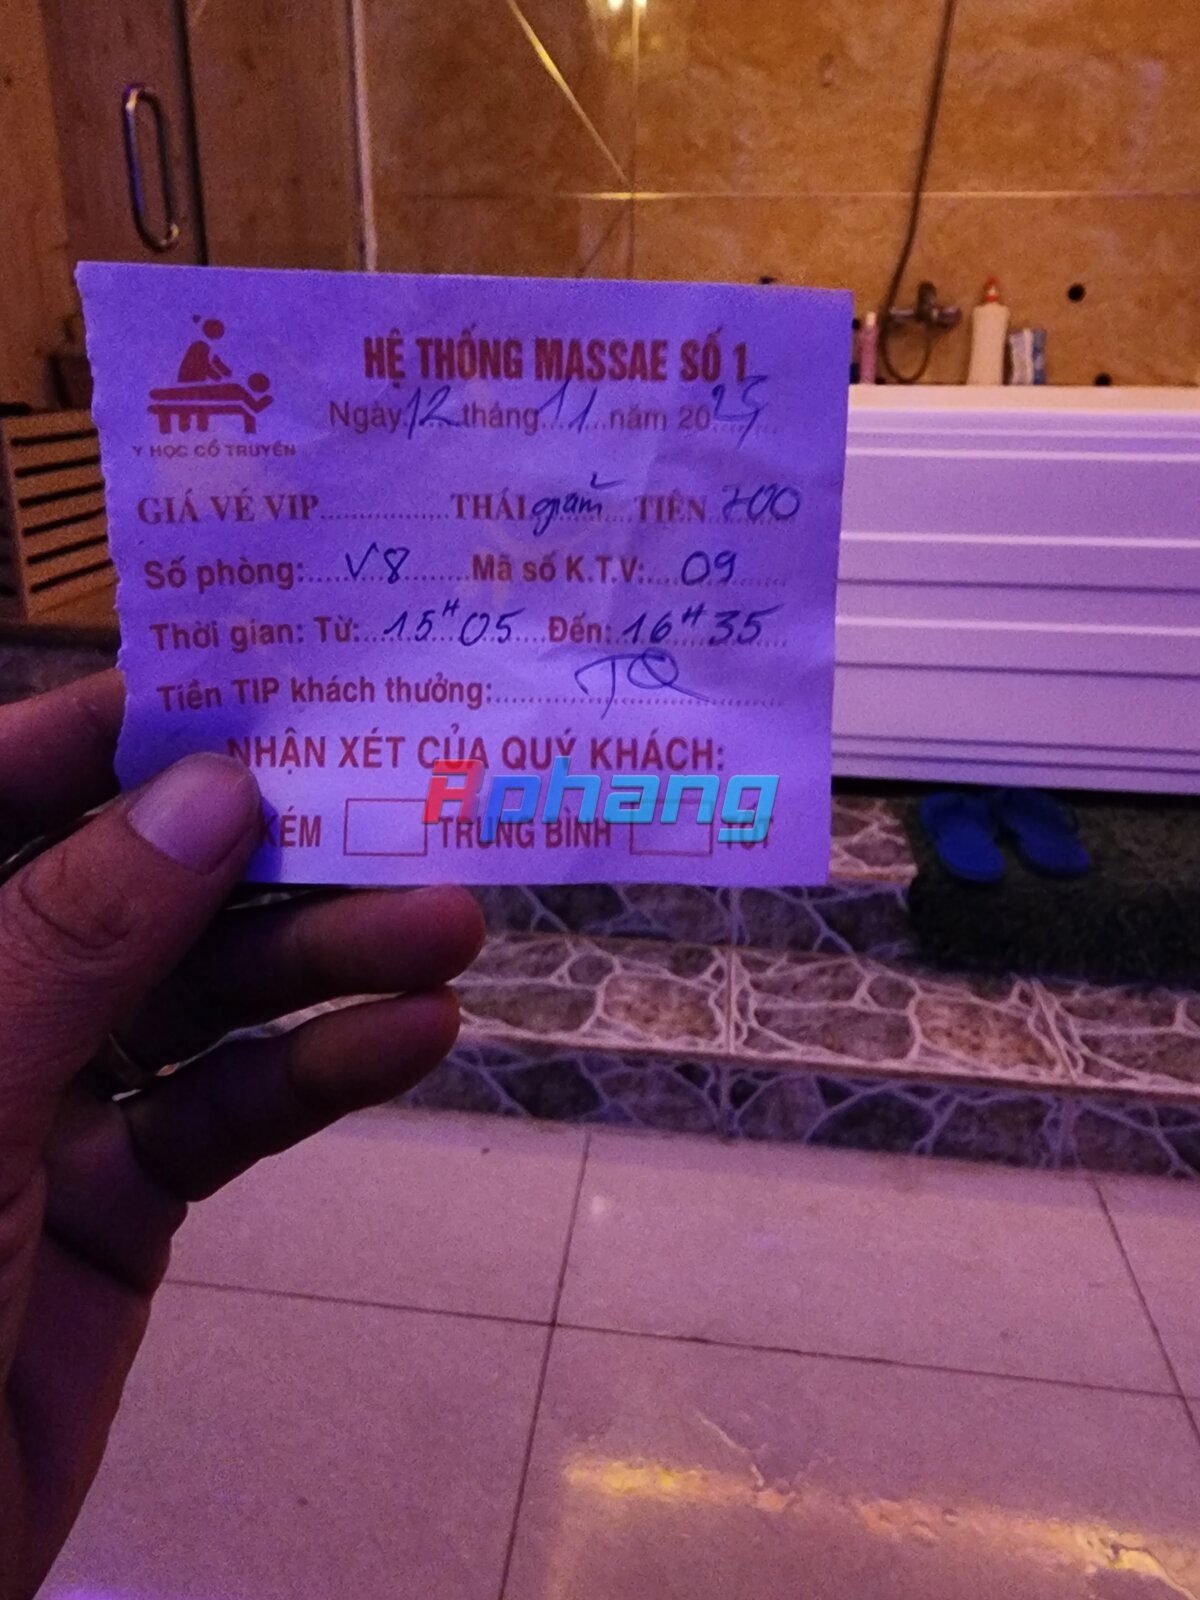 HỆ THỐNG MASSAE SỐ 1
Ngày 12 tháng 11 năm 2025
Y HỌC CỔ TRUYỀN
GIÁ VÉ VIP.................THÁI giảm TIỀN 700
Số phòng:....V8........Mã số K.T.V:...09
Thời gian: Từ:..15H05...Đến:.16H35
Tiền TIP khách thưởng:........................
NHẬN XÉT CỦA QUÝ KHÁCH:
KÉM TRUNG BÌNH TỐT
Aphang